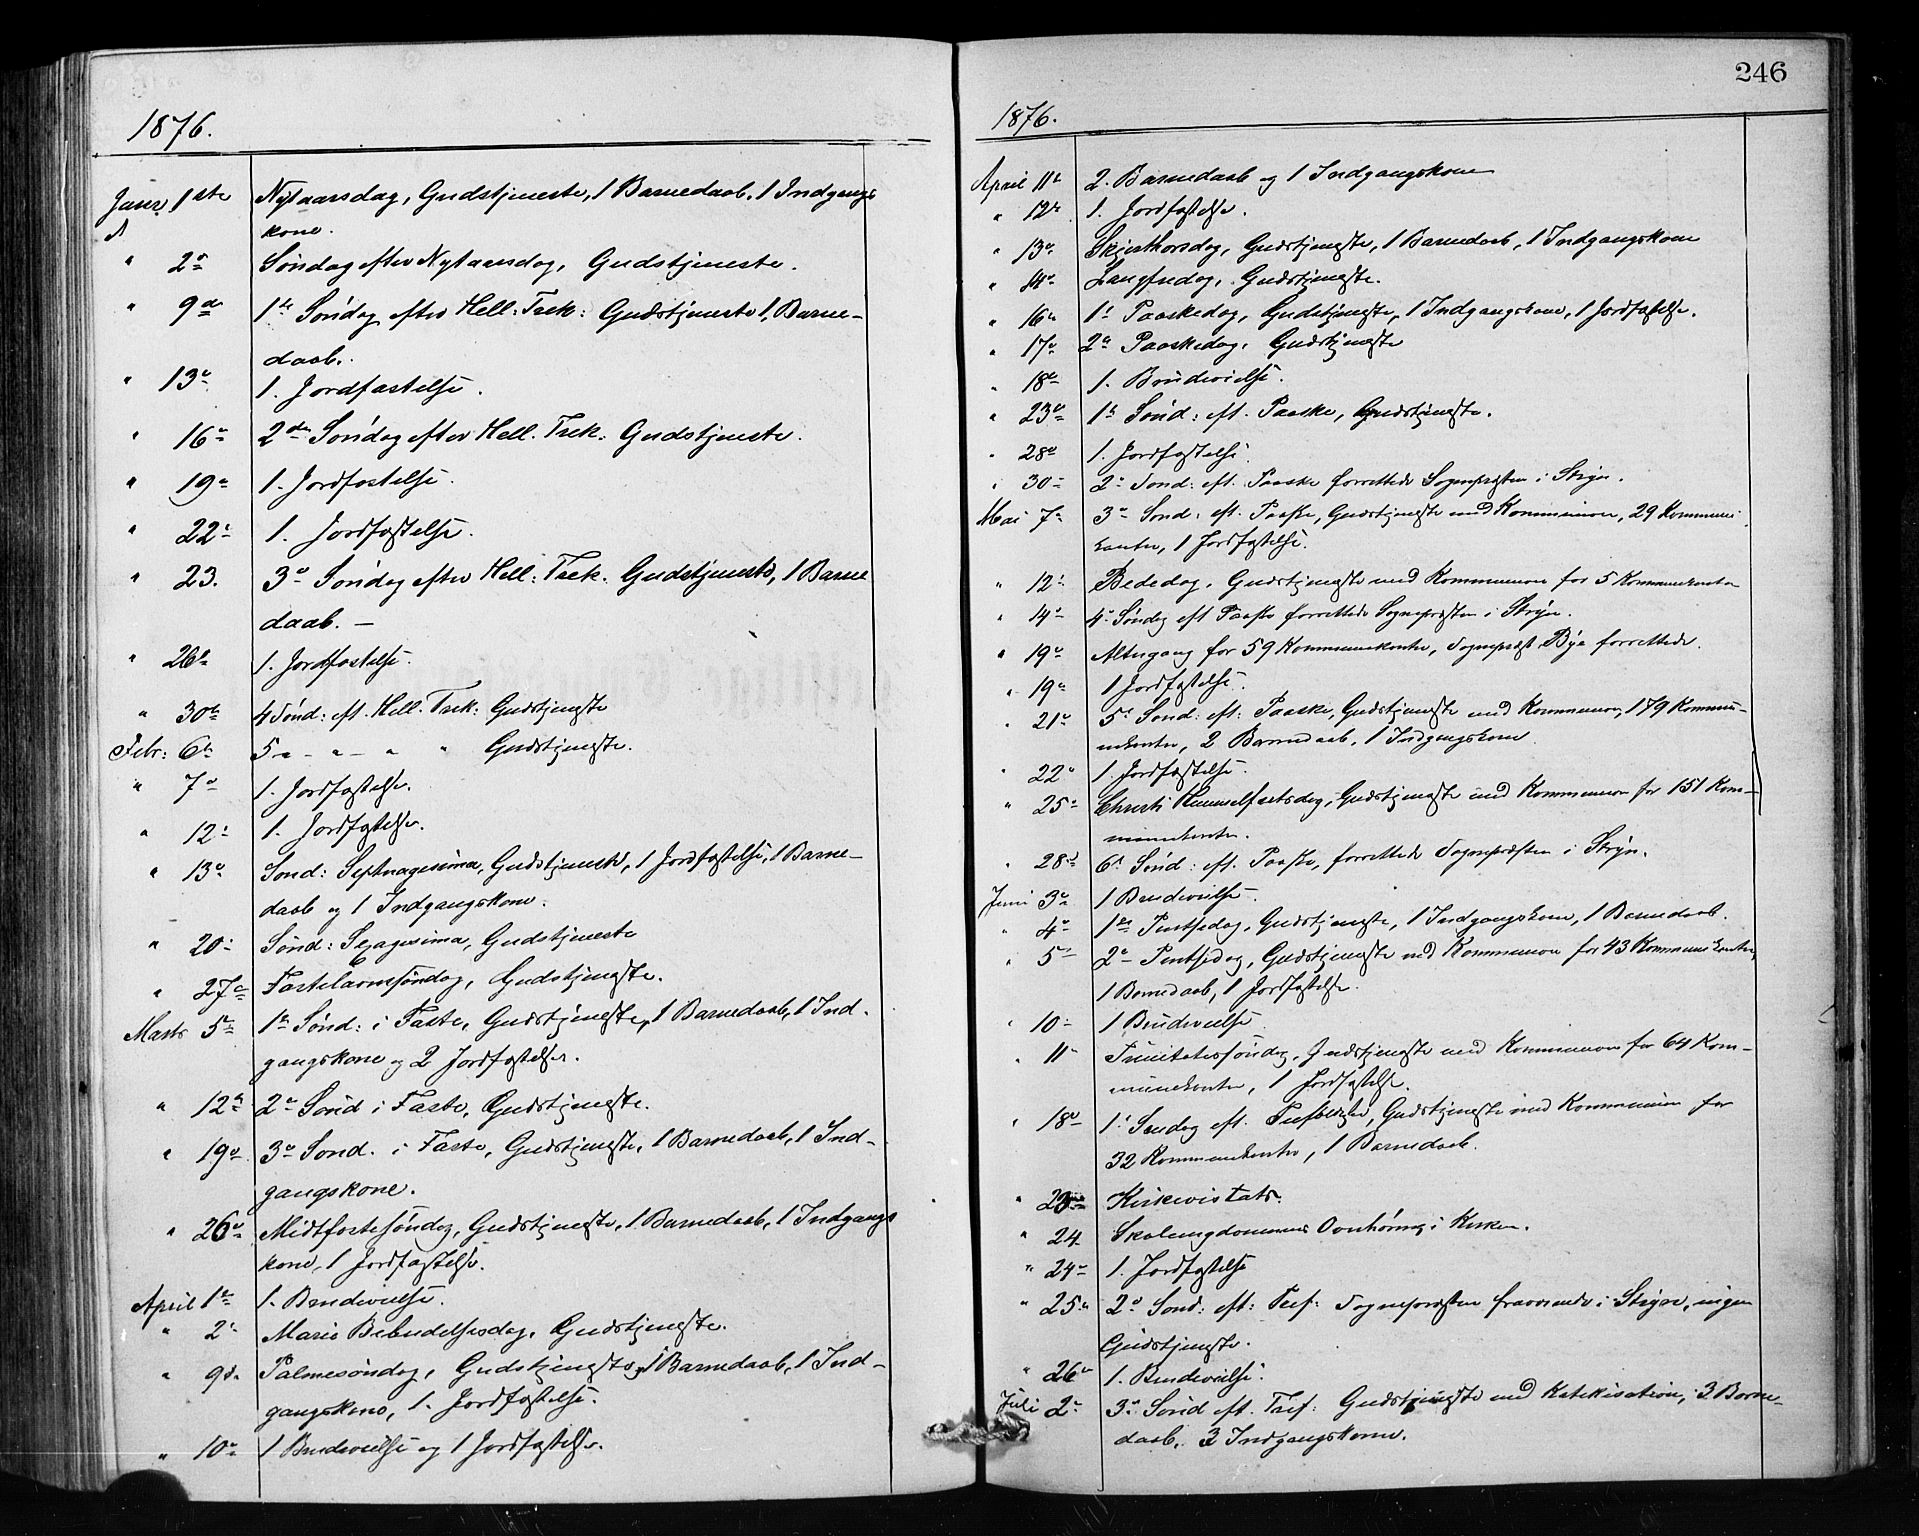 1876.
Janr 1ste Nytaarsdag, Gudstjeneste, 1 Barnedaab, 1 Indgangs
kone.
" 2den Søndag efter Nytaarsdag, Gudstjeneste.
" 9de 1ste Søndag efter Hell: Trek: Gudstjeneste 1, Barne-
daab.
" 13de 1. Jordfæstelse.
" 16de 2den Søndag efter Hell. Trek. Gudstjeneste.
" 19de 1. Jordfæstelse.
" 22de 1. Jordfæstelse.
" 23. 3de Søndag efter Hell: Trek. Gudstjeneste, 1 Barne
daab. —
" 26de 1. Jordfæstelse.
" 30te 4 Sønd: eft. Hell. Trek: Gudstjeneste
Febr: 6te 5 " — " — " " Gudstjeneste.
" 7de 1. Jordfæstelse.
" 12te 1. Jordfæstelse.
" 13de Sønd: Septuagesima, Gudstjeneste, 1 Jordfæstelse, 1 Barne-
daab og 1 Indgangskone.
" 20de Sønd: Sexagesima, Gudstjeneste
" 27de Fastelavnssøndag, Gudstjeneste.
Marts 5te 1ste Sønd: i Faste, Gudstjeneste, 1 Barnedaab, 1 Ind-
gangskone og 2 Jordfæstelser.
" 12te 2den Sønd i Faste, Gudstjeneste.
" 19de 3de Sønd. i Faste, Gudstjeneste, 1 Barnedaab, 1 Ind-
gangskone.
" 26de Midtfastesøndag, Gudstjeneste, 1 Barnedaab, 1 Indgangs
kone, 1 Jordfæstelse.
April 1ste 1. Brudevielse.
" 2den Mariæ Bebudelsesdag, Gudstjeneste.
" 9de Palmesøndag, Gudstjeneste, 1 Barnedaab, 1 Ind-
gangskone, 1. Jordfæstelse.
" 10de 1 Brudevielse og 1 Jordfæstelse.
246
1876.
April 11te 2. Barnedaab og 1 Indgangskone
" 12te 1. Jordfæstelse.
" 13de Skjærthorsdag, Gudstjeneste, 1 Barnedaab, 1 Indgangskone
" 14de Langfredag, Gudstjeneste.
" 16de 1ste Paaskedag, Gudstjeneste, 1 Indgangskone, 1 Jordfæstelse.
" 17de 2den Paaskedag, Gudstjeneste
" 18de 1. Brudevielse.
" 23de 1ste Sønd: eft. Paaske, Gudstjeneste.
" 28de 1. Jordfæstelse.
" 30te 2den Sønd: eft. Paaske forrettede Sognepræsten i Stryn.
Mai 7de 3de Sønd: eft. Paaske, Gudstjeneste med Kommunion, 29 Kommuni
kanter, 1 Jordfæstelse.
" 12te Bededag, Gudstjeneste med Kommunion for 5 Kommunikanter
" 14de 4de Søndag eft Paaske forrettede Sognepræsten i Stryn.
" 19de Altergang for 59 Kommunikanter, Sognepræst Bye forrettede.
" 19de 1 Jordfæstelse.
" 21de 5te Sønd: eft: Paaske, Gudstjeneste med Kommunion, 179 Kommu-
nikanter, 2 Barnedaab, 1 Indgangskone.
" 22de 1. Jordfæstelse.
" 25de Christi Himmelfartsdag, Gudstjeneste med Kommunion for 151 Kom-
munikanter.
" 28de 6te Sønd: eft. Paaske, forrettede Sognepræsten i Stryn.
Juni 3de 1 Brudevielse.
" 4de 1ste Pintsedag, Gudstjeneste, 1 Indgangskone, 1 Barnedaab.
" 5te 2den Pintsedag, Gudstjeneste med Kommunion for 43 Kommunikanter,
1 Barnedaab, 1 Jordfæstelse.
" 10de 1 Brudevielse.
" 11te Trinitatissøndag, Gudstjeneste med Kommunion for 64 Kom-
munikanter, 1 Jordfæstelse.
" 18de 1ste Søndag eft. Gudstjeneste med Kommunion for
32 Kommunikanter, 1 Barnedaab.
" 23de Kirkevistats.
" 24 Skoleungdommens Overhøring i Kirken.
" 24de 1. Jordfæstelse
" 25de 2den Sønd: eft: Tref: Sognepræsten fraværende i Stryn, ingen
Gudstjeneste.
" 26de 1. Brudevielse.
Juli 2den 3de Sønd eft. Tref: Gudstjeneste med Katekisation, 3 Barne-
daab, 3 Indgangskoner.